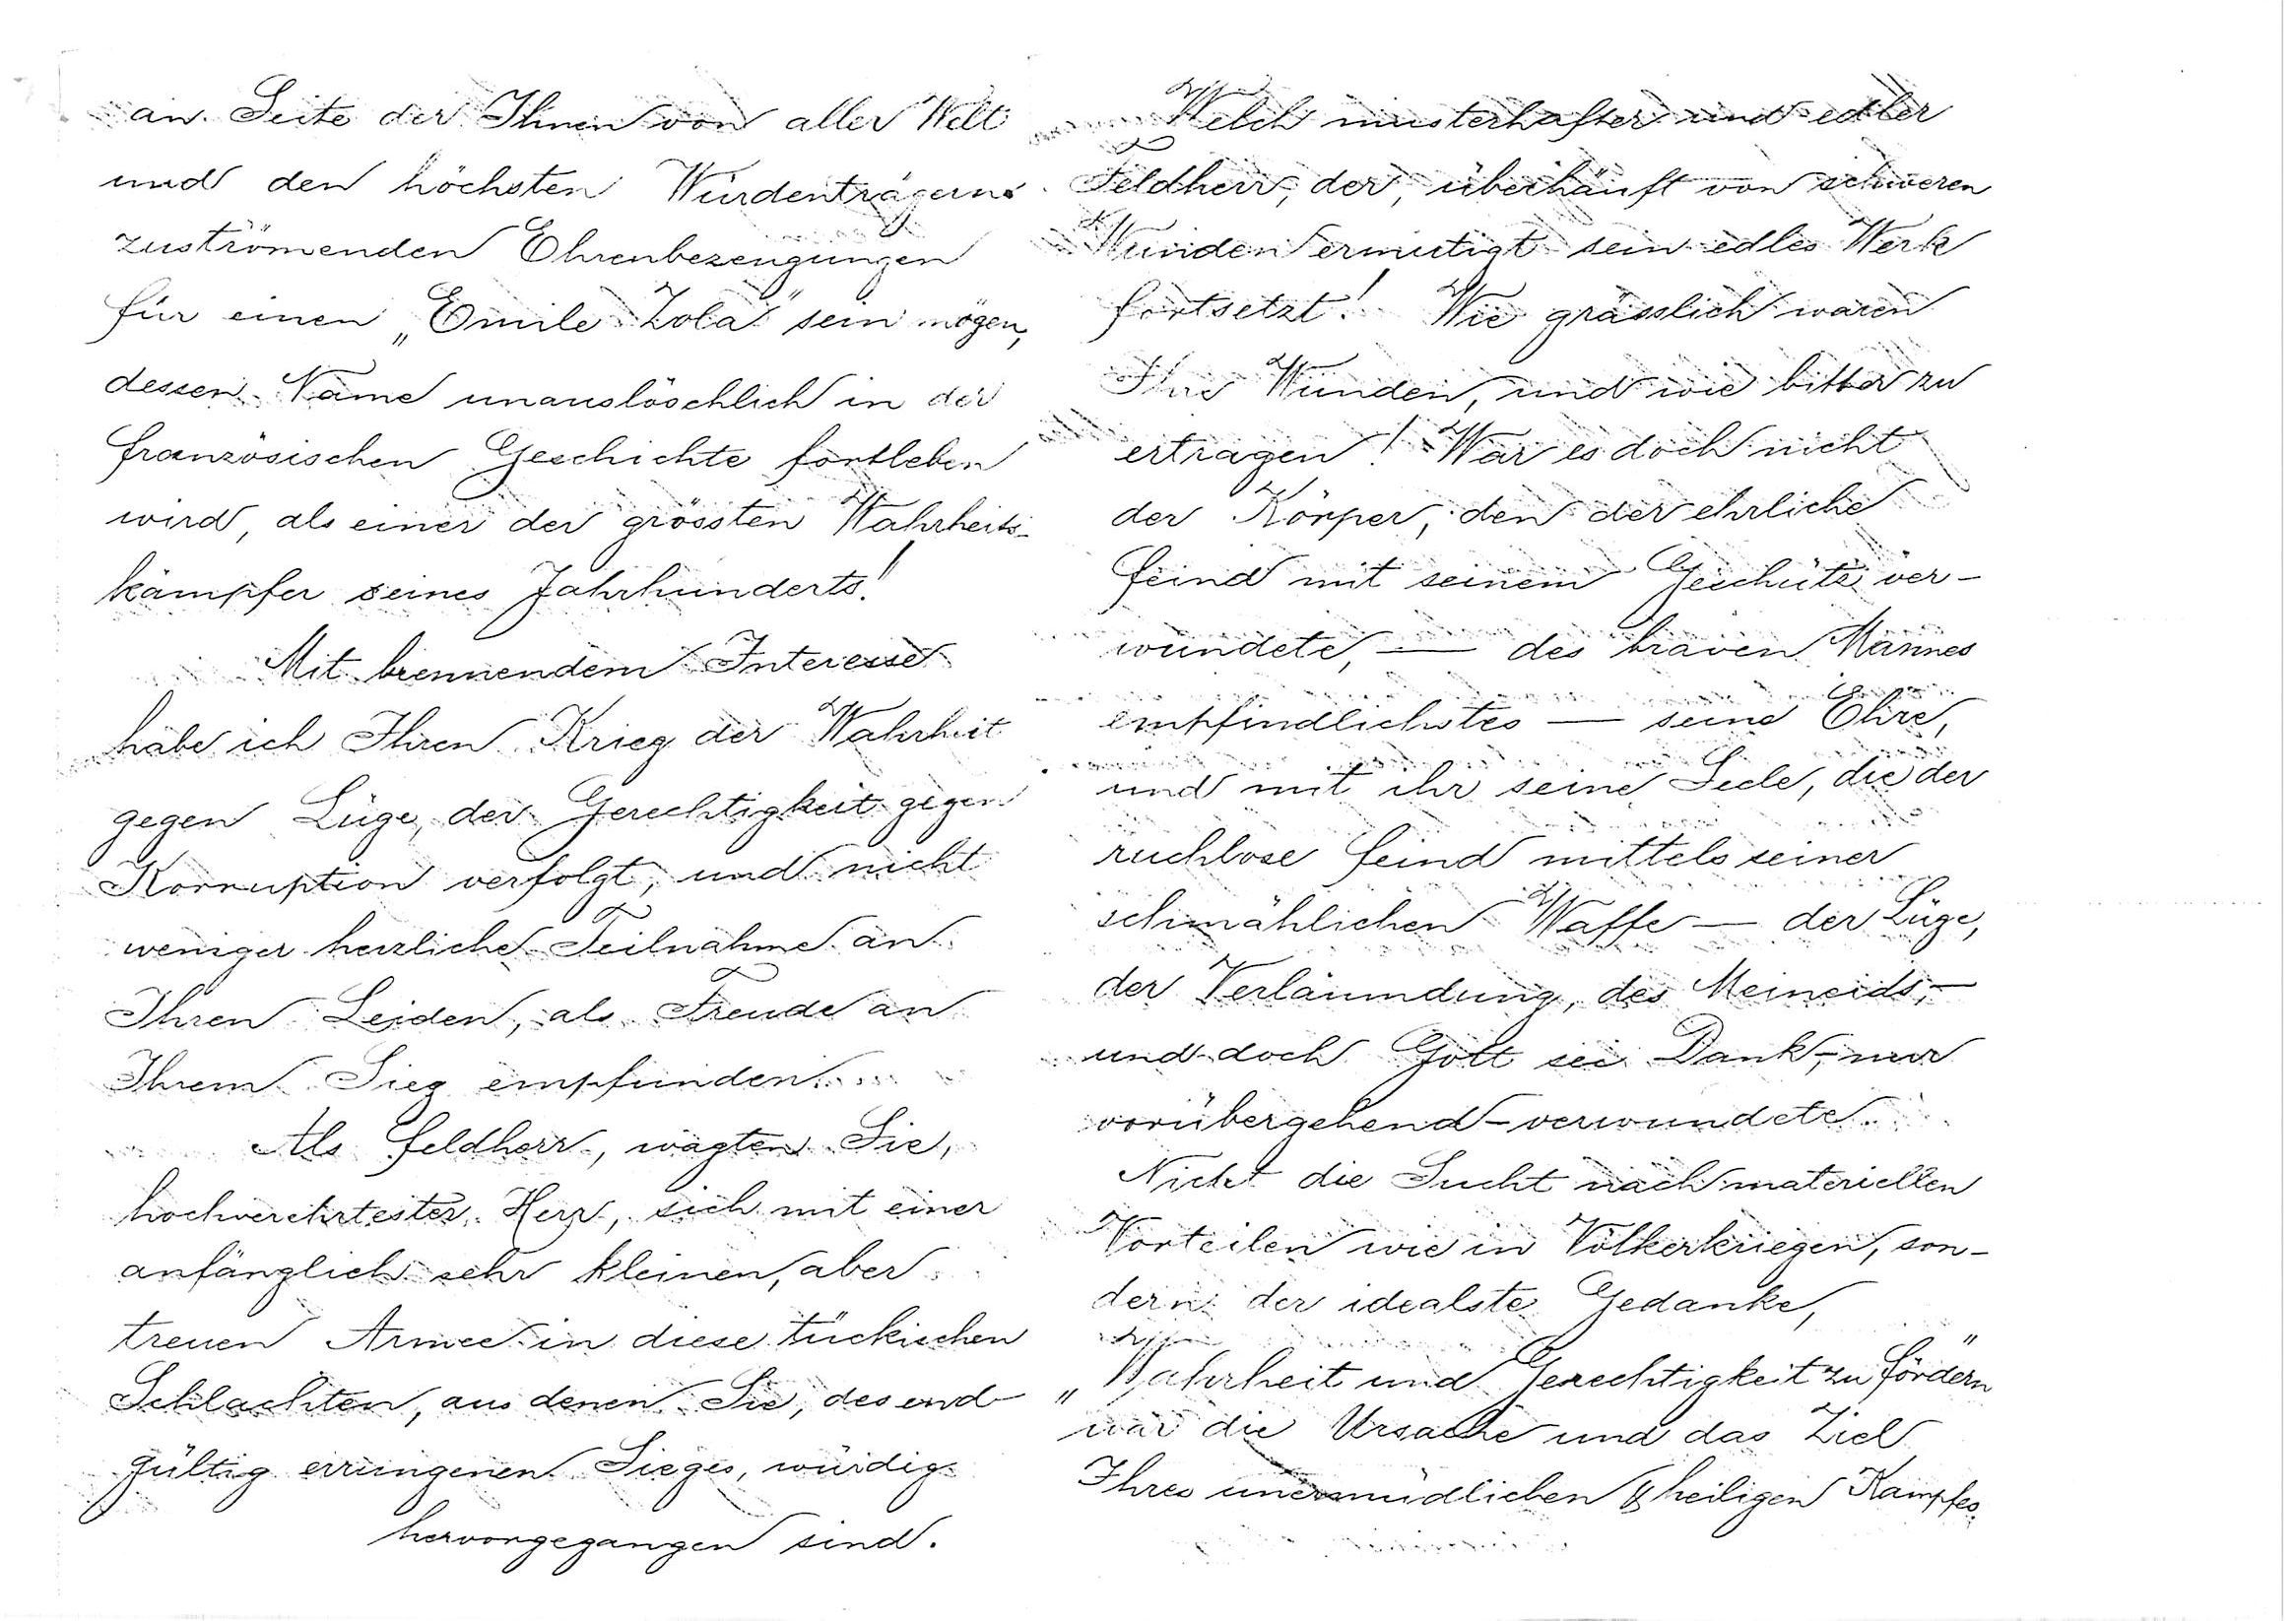 an Seite der Ihnen von aller Welt
und den höchsten Würdenträgern
zuströmenden Ehrenbezeugungen
für einen „Emile Zola" sein mögen,
dessen Name unauslöschlich in der
französischen Geschichte fortleben
wird, als einer der grössten Wahrheits-
kämpfer seines Jahrhunderts!
Mit brennendem Interesse
habe ich Ihren Krieg der Wahrheit
gegen Lüge, der Gerechtigkeit gegen
Korruption verfolgt, und nicht
weniger herzliche Teilnahme an
Ihren Leiden, als Freude an
Ihrem Sieg empfunden.
Als Feldherr, wagten Sie,
hochverehrtester Herr, sich mit einer
anfänglich sehr kleinen, aber
treuen Armee in diese tückischen
Schlachten, aus denen Sie, des end-
gültig errungenen Sieges, würdig
hervorgegangen sind.
Welch musterhafter und edler
Feldherr, der, überhäuft von schweren
Wunden ermutigt sein edles Werk
fortsetzt! Wie grässlich waren
Ihre Wunden, und wie bitter zu
ertragen! War es doch nicht
der Körper, den der ehrliche
Feind mit seinem Geschütz ver-
wundete, — des braven Mannes
empfindlichstes — seine Ehre,
und mit ihr seine Seele, die der
ruchlose Feind mittels seiner
schmählichen Waffe — der Lüge,
der Verläumdung, des Meineids, —
und doch Gott sei Dank, – nur
vorübergehend – verwundete.
Nicht die Sucht nach materiellen
Vorteilen wie in Völkerkriegen, son-
dern der idealste Gedanke,
„Wahrheit und Gerechtigkeit zu fördern"
war die Ursache und das Ziel
Ihres unermüdlichen & heiligen Kampfes.